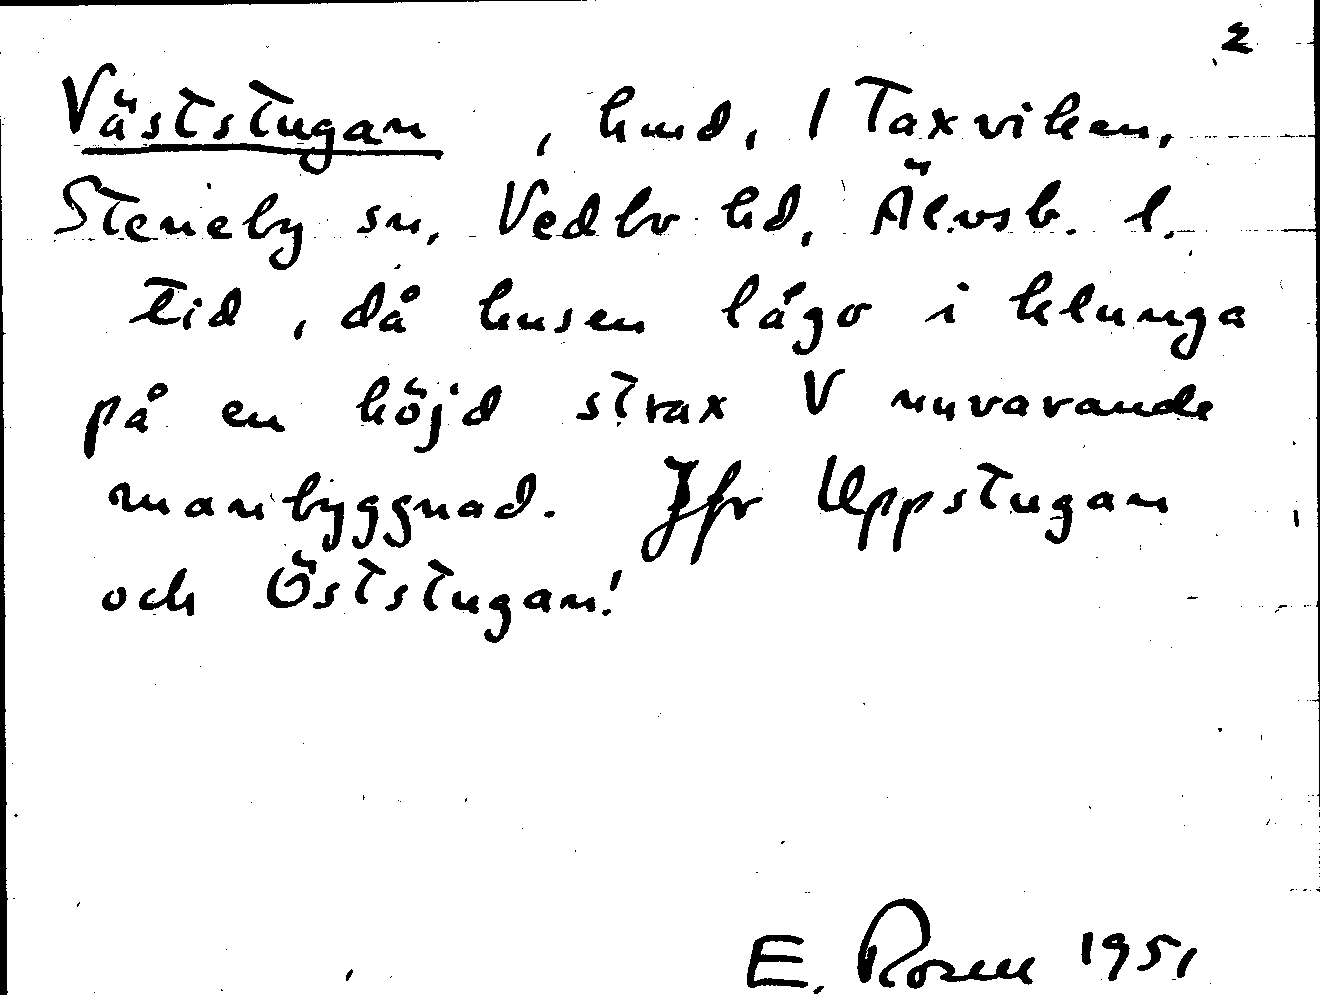 2
Väststugan , hmd, 1 Taxviken,
Steneby sn, Vedbo hd, Älvsb. l.
tid, då husen lågo i klunga
på en höjd strax V nuvarande
manbyggnad. Jfr Uppstugan
och Öststugan!
E. Rosell 1951